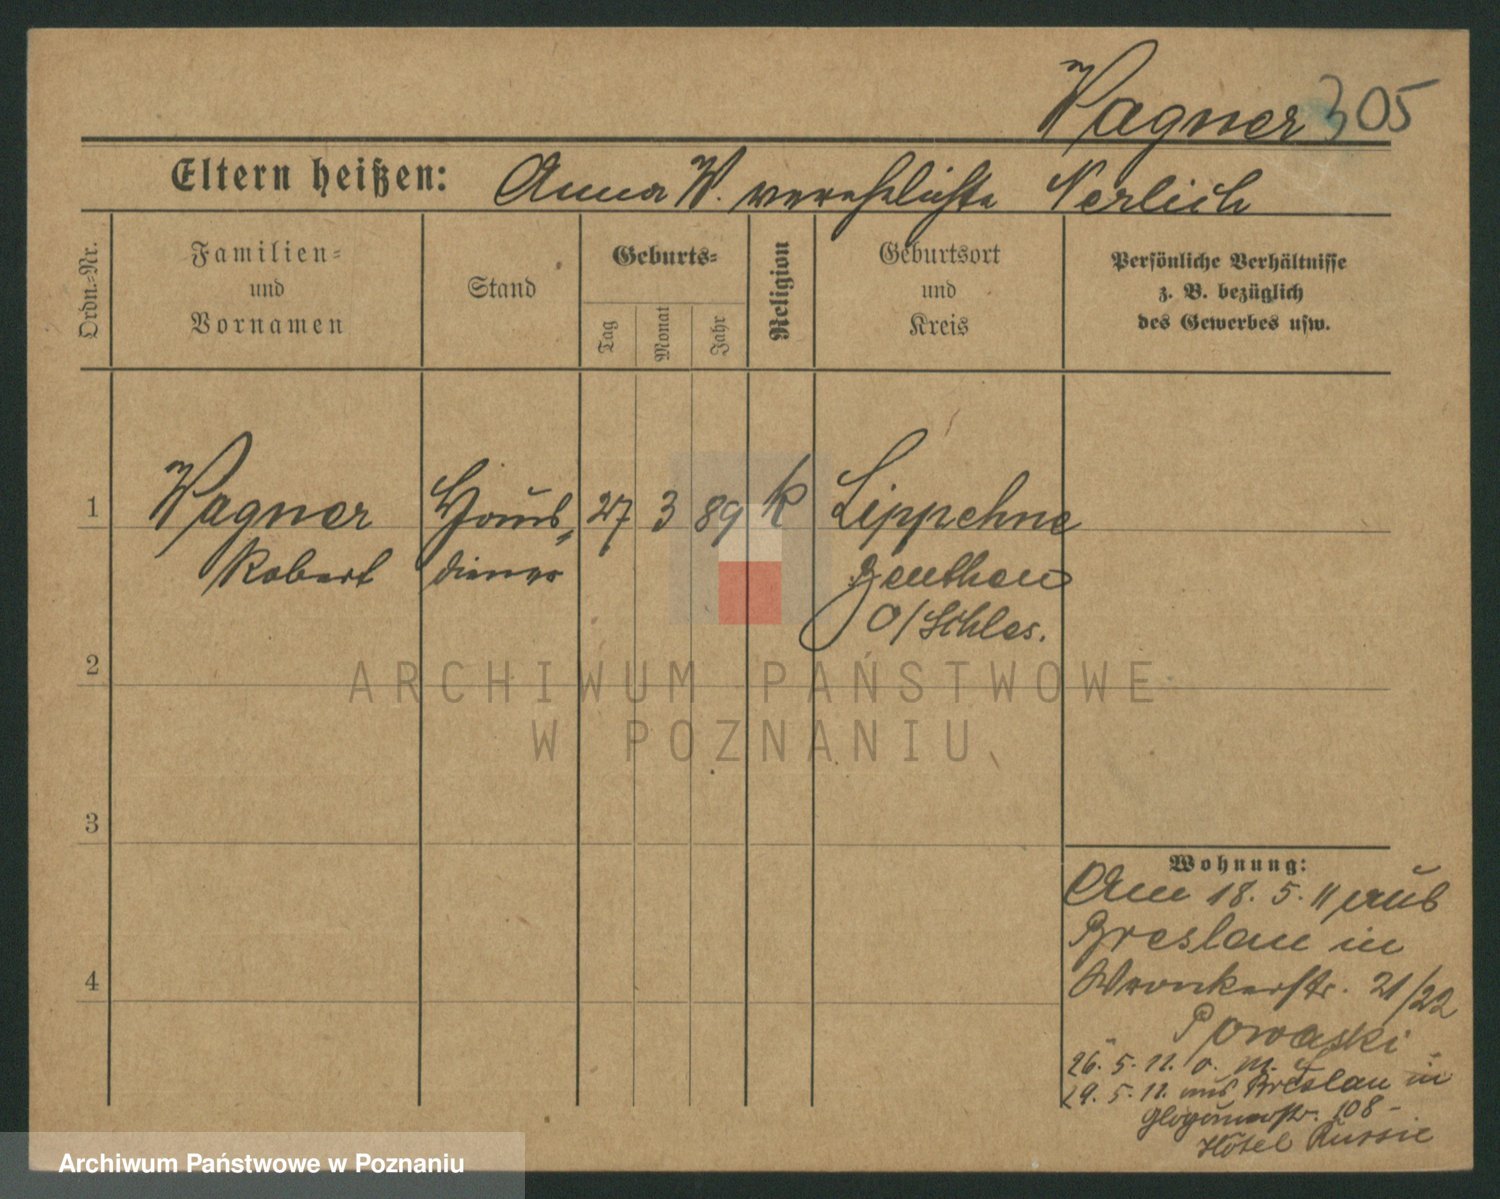 Wagner 305
Eltern heißen: Anna W. verehelichte Nerlich
Ordn.-Nr.
Familien- und Vornamen
Stand
Geburts-
Tag
Monat
Jahr
Religion
Geburtsort und Kreis
Persönliche Verhältnisse
z. B. bezüglich
des Gewerbes usw.
1 Wagner Haus- 27 3 89 k Lippehne
Robert diener Beuthen
O/Schles.
2
3
4
Wohnung:
Am 18. 5. 11 aus
Breslau in
Wronkerstr. 21/22
Powaski
26. 5. 11. o. M.
29. 5. 11. aus Breslau in
Glogauerstr. 108 -
Hotel Russie
ARCHIWUM PAŃSTWOWE
W POZNANIU
Archiwum Państwowe w Poznaniu